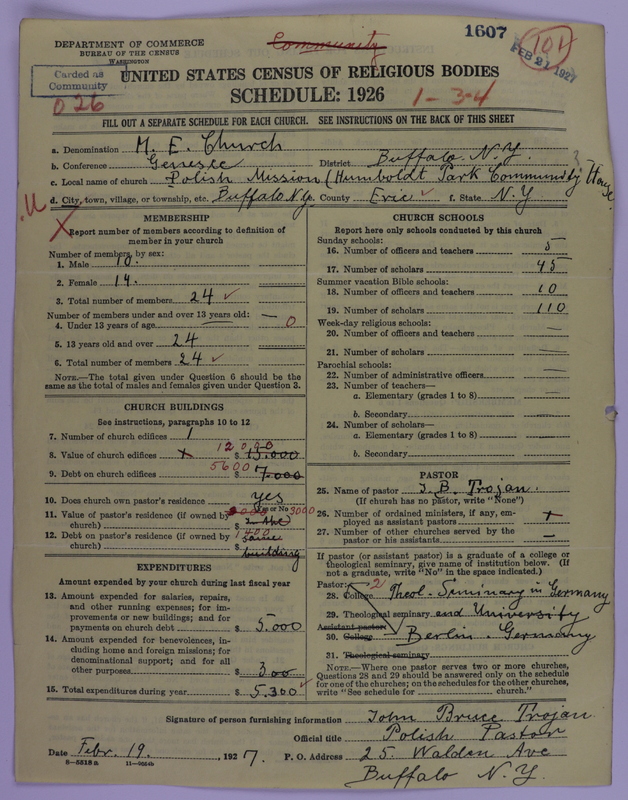 1607
DEPARTMENT OF COMMERCE
BUREAU OF THE CENSUS
WASHINGTON
Community
101
FEB 21 1927
Carded as
Community
026
UNITED STATES CENSUS OF RELIGIOUS BODIES
SCHEDULE: 1926
1-3-4
FILL OUT A SEPARATE SCHEDULE FOR EACH CHURCH. SEE INSTRUCTIONS ON THE BACK OF THIS SHEET
a. Denomination M. E. Church
b. Conference Genesee District Buffalo N.Y.
c. Local name of church Polish Mission (Humboldt Park Community House
d. City, town, village, or township, etc. Buffalo N.Y. e. County Erie f. State N.Y
MEMBERSHIP
Report number of members according to definition of
member in your church
Number of members, by sex:
1. Male 10.
2. Female 14.
3. Total number of members 24 ✓
Number of members under and over 13 years old:
4. Under 13 years of age — 0
5. 13 years old and over 24
6. Total number of members 24 ✓
NOTE.—The total given under Question 6 should be the
same as the total of males and females given under Question 3.
CHURCH BUILDINGS
See instructions, paragraphs 10 to 12
7. Number of church edifices 1
12000
8. Value of church edifices x $ 15.000
5600
9. Debt on church edifices $ 7.000
10. Does church own pastor's residence yes
Yes or No
11. Value of pastor's residence (if owned by 3000
church) $ in the
12. Debt on pastor's residence (if owned by 1400
church) $ same
building
EXPENDITURES
Amount expended by your church during last fiscal year
13. Amount expended for salaries, repairs,
and other running expenses; for im-
provements or new buildings; and for
payments on church debt $ 5.000
14. Amount expended for benevolences, in-
cluding home and foreign missions; for
denominational support; and for all
other purposes $ 300
15. Total expenditures during year $ 5.300 ✓
CHURCH SCHOOLS
Report here only schools conducted by this church
Sunday schools:
16. Number of officers and teachers 5
17. Number of scholars 45
Summer vacation Bible schools:
18. Number of officers and teachers 10
19. Number of scholars 110
Week-day religious schools:
20. Number of officers and teachers —
21. Number of scholars —
Parochial schools:
22. Number of administrative officers —
23. Number of teachers—
a. Elementary (grades 1 to 8) —
b. Secondary —
24. Number of scholars—
a. Elementary (grades 1 to 8) —
b. Secondary —
PASTOR
25. Name of pastor J. B. Trojan.
(If church has no pastor, write "None")
26. Number of ordained ministers, if any, em-
ployed as assistant pastors
27. Number of other churches served by the
pastor or his assistants —
If pastor (or assistant pastor) is a graduate of a college or
theological seminary, give name of institution below. (If
not a graduate, write "No" in the space indicated.)
Pastor: 2
28. College Theol. Seminary in Germany
29. Theological seminary and University
Assistant pastor:
30. College Berlin. Germany
31. Theological seminary
NOTE.—Where one pastor serves two or more churches,
Questions 28 and 29 should be answered only on the schedule
for one of the churches; on the schedules for the other churches,
write "See schedule for church."
Signature of person furnishing information John Bruce Trojan
Official title Polish Pastor
Date Febr. 19., 1927. P. O. Address 25. Walden Ave
8—5518 a 11—9554b
Buffalo N.Y.